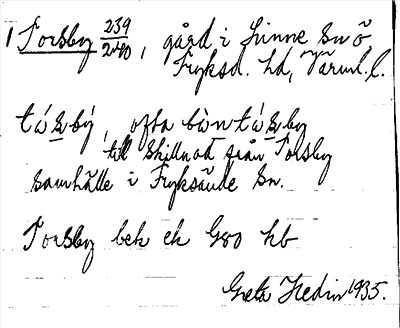 1 Torsby 239/240, gård i Sunne sn ö
Fryksd. hd, Värml. l.
tá's̲bý, ofta bànтá's̲by
till skillnad från Torsby
samhälle i Fryksände sn.
Torsby bek ek G80 hb
Greta Hedin 1935.